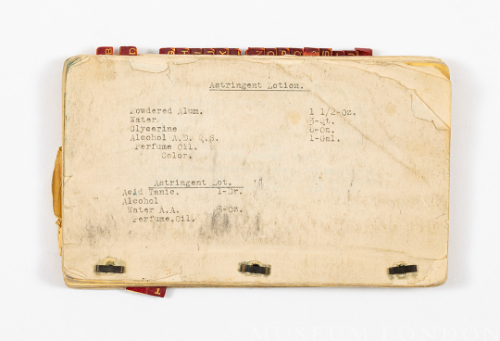 Astringent Lotion.
Powdered Alum. 1 1/2-Oz.
Water
Glycerine
Alcohol A.D. Q.S. 1-Gal.
Perfume Oil.
Color.
Astringent Lot.
Acid Tanic. 1-Dr.
Alcohol
Water A.A.
Perfume.Oil.